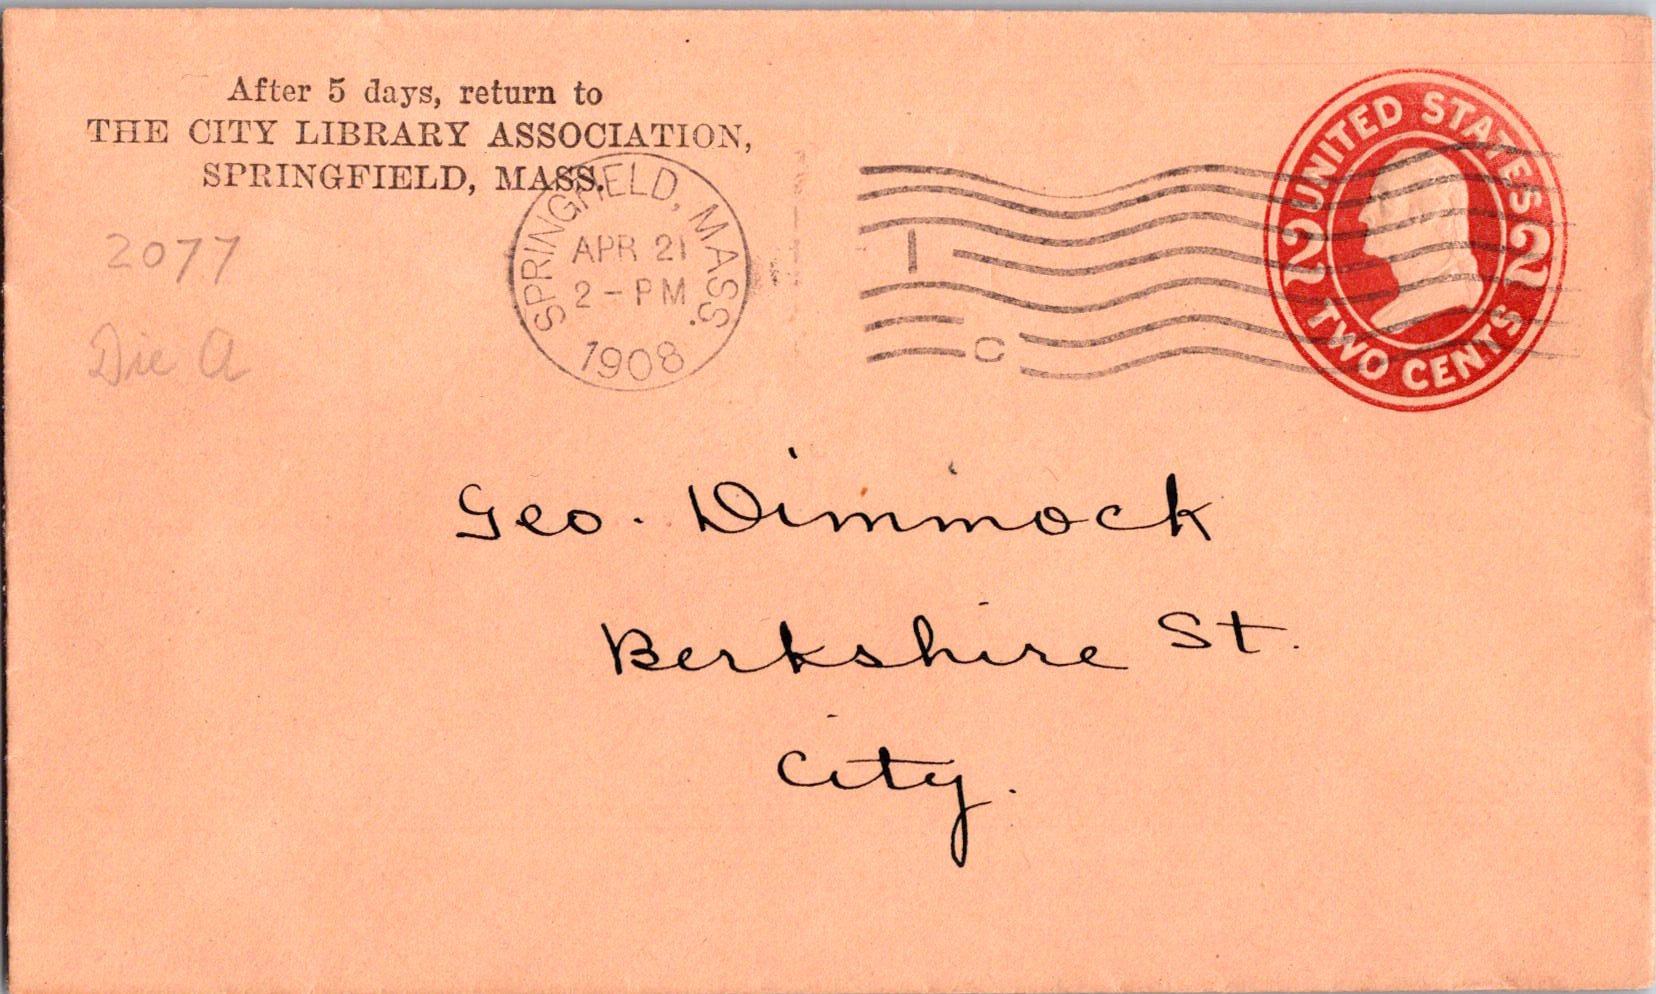 After 5 days, return to
THE CITY LIBRARY ASSOCIATION,
SPRINGFIELD, MASS.
2077
Die A
SPRINGFIELD, MASS.
APR 21
2-PM
1908
1
C
UNITED STATES
2 2
TWO CENTS
Geo. Dimmock
Berkshire St.
City.